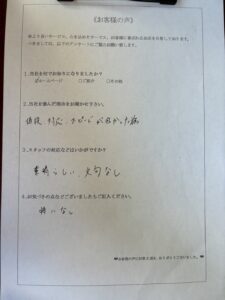 《お客様の声》
1.当社を何でお知りになりましたか?
☑ホームページ □ご紹介 □その他
2.当社を選んだ理由をお聞かせ下さい。
値段、対応、スピードが良かった為
3.スタッフの対応などはいかがですか?
素晴らしい、文句なし
4.お気づきの点などございましたらご記入ください。
特になし